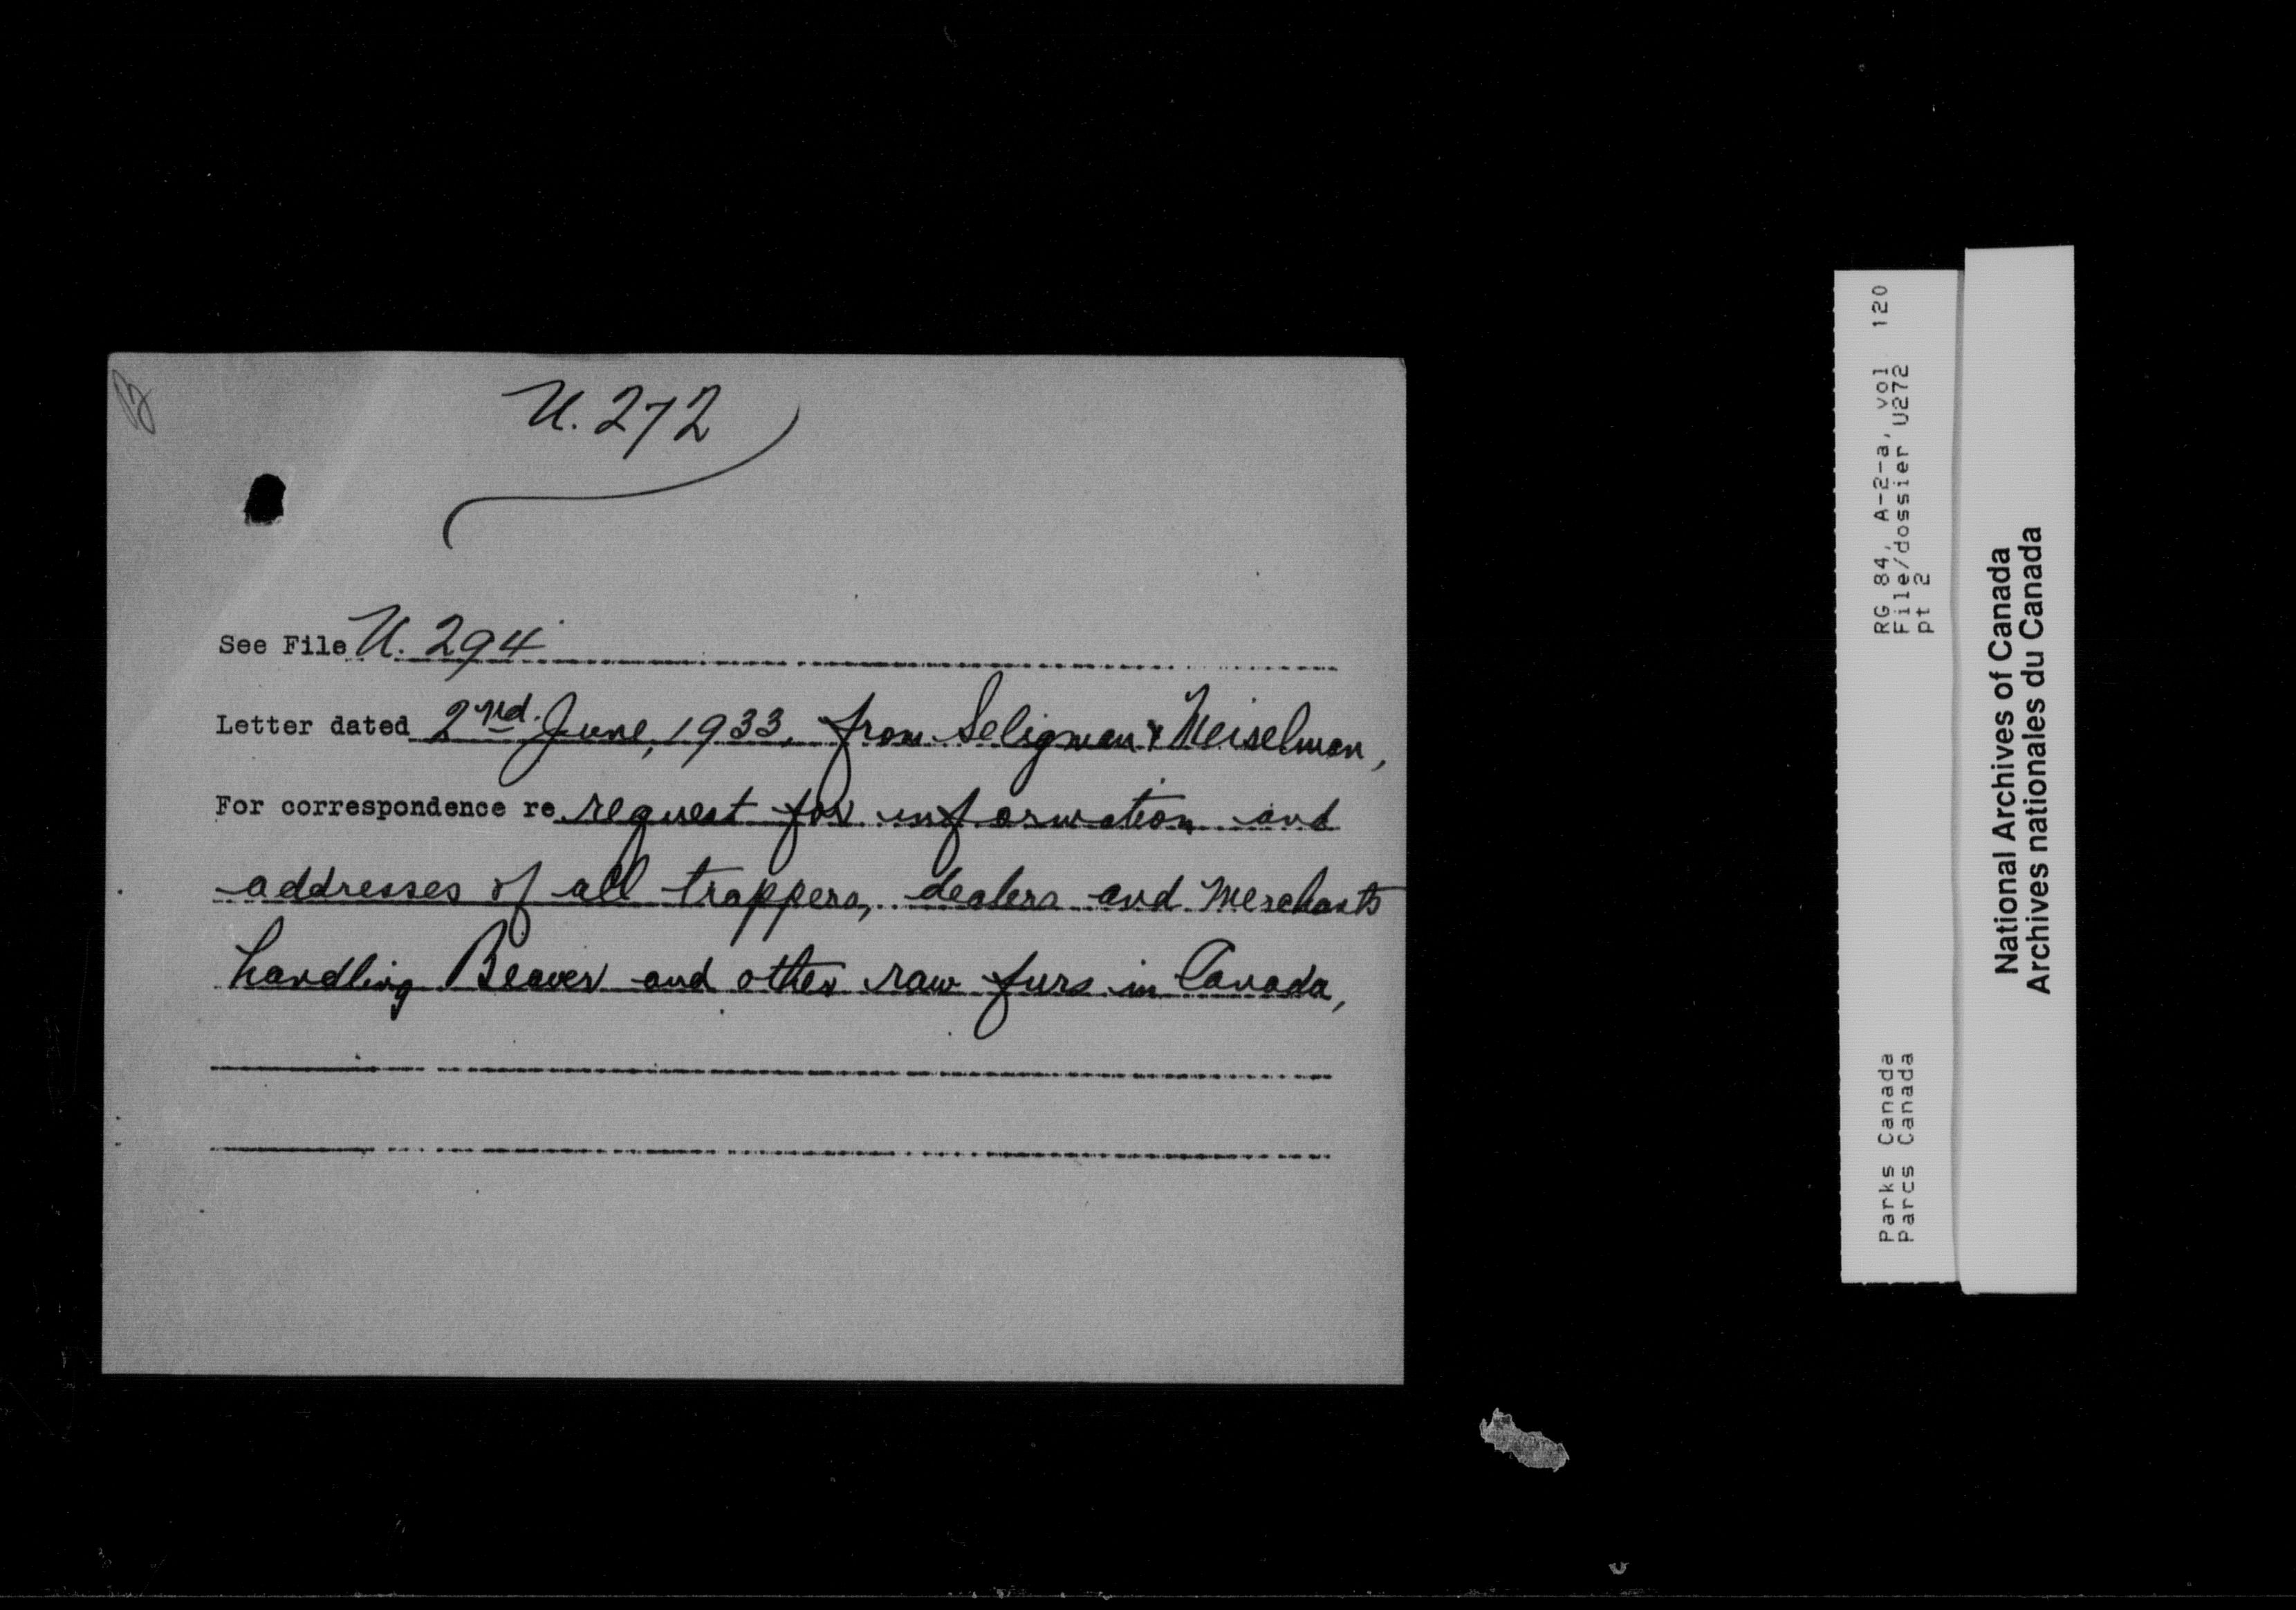 U. 272
See File U. 294
Letter dated 2nd. June, 1933, from Seligman & Meiselman,
For correspondence re request for information and
addresses of all trappers, dealers and Merchants
handling Beaver and other raw furs in Canada,
RG 84, A-2-a, vol 120
File/dossier U272
pt 2
Parks Canada
Parcs Canada
National Archives of Canada
Archives nationales du Canada